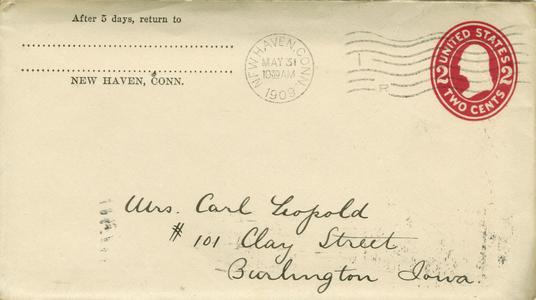 After 5 days, return to
NEW HAVEN, CONN.
NEW HAVEN, CONN.
MAY 31
1909
I
R
UNITED STATES
2 2
TWO CENTS
Mrs. Carl Leopold
# 101 Clay Street
Burlington Iowa.